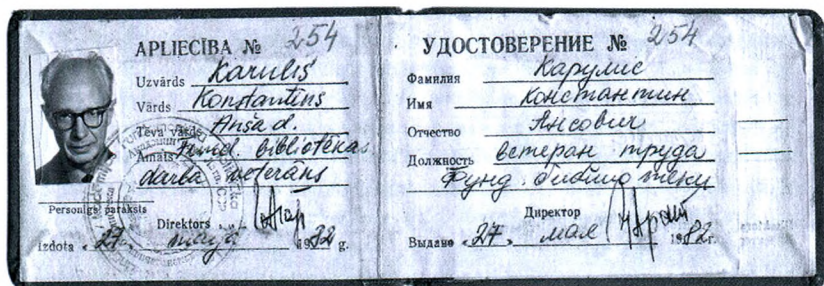 APLIECĪBA № 254
Uzvārds Karulis
Vārds Konstantīns
Tēva vārds Anša d.
Amats Fund. bibliotēkas
darba veterāns
Personīgs paraksts
Direktors
Izdota "27" maijā 1982 g.
УДОСТОВЕРЕНИЕ № 254
Фамилия Карулис
Имя Константин
Отчество Янсович
Должность ветеран труда
Фунд. библиотеки
Директор
Выдано "27" мая 1982 г.